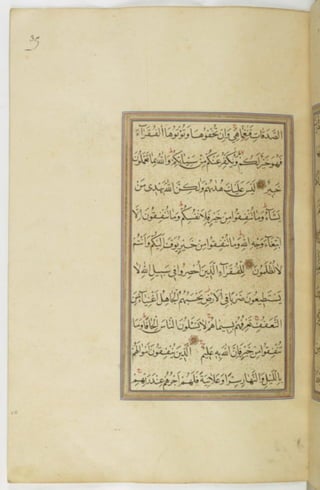 الصَّدَقَاتِ فَنِعِمَّا هِيَ وَإِنْ تُخْفُوهَا وَتُؤْتُوهَا الْفُقَرَآءَ
فَهُوَ خَيْرٌ لَكُمْ وَيُكَفِّرُ عَنْكُمْ مِنْ سَيِّئَاتِكُمْ وَاللّٰهُ بِمَا تَعْمَلُونَ
خَبِيرٌ لَيْسَ عَلَيْكَ هُدٰيهُمْ وَلٰكِنَّ اللّٰهَ يَهْدِى مَنْ
يَشَآءُ وَمَا تُنْفِقُوا مِنْ خَيْرٍ فَلِاَنْفُسِكُمْ وَمَا تُنْفِقُونَ اِلَّا
ابْتِغَآءَ وَجْهِ اللّٰهِ وَمَا تُنْفِقُوا مِنْ خَيْرٍ يُوَفَّ اِلَيْكُمْ وَاَنْتُمْ
لَا تُظْلَمُونَ لِلْفُقَرَآءِ الَّذِينَ اُحْصِرُوا فِى سَبِيلِ اللّٰهِ لَا
يَسْتَطِيعُونَ ضَرْبًا فِى الْاَرْضِ يَحْسَبُهُمُ الْجَاهِلُ اَغْنِيَآءَ مِنَ
التَّعَفُّفِ تَعْرِفُهُمْ بِسِيمَاهُمْ لَا يَسْئَلُونَ النَّاسَ اِلْحَافًا وَمَا
تُنْفِقُوا مِنْ خَيْرٍ فَاِنَّ اللّٰهَ بِهِ عَلِيمٌ الَّذِينَ يُنْفِقُونَ اَمْوَالَهُمْ
بِالَّيْلِ وَالنَّهَارِ سِرًّا وَعَلَانِيَةً فَلَهُمْ اَجْرُهُمْ عِنْدَ رَبِّهِمْ